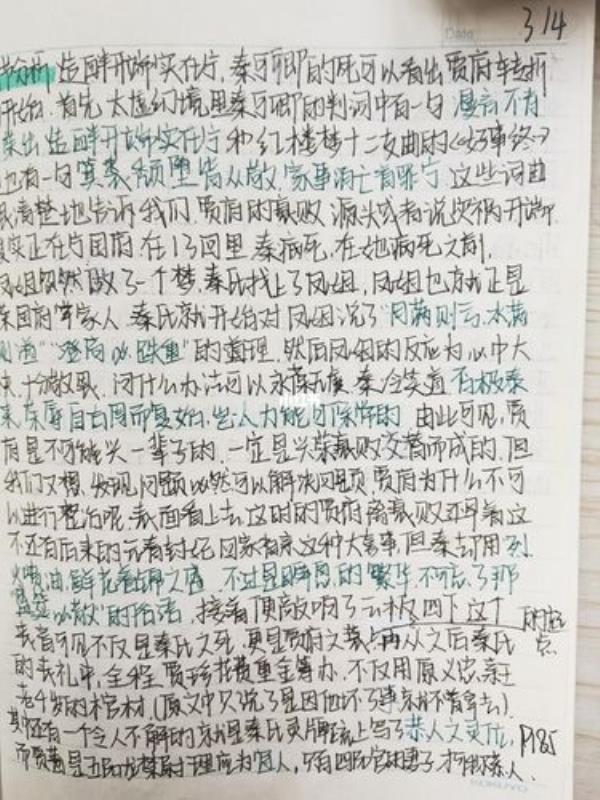 314
节分析 造衅开端实在宁，秦可卿的死可以看出贾府转折
开始。首先太虚幻境里秦可卿的判词中有一句 漫言不肖
荣出 造衅开端实在宁 和红楼梦十二支曲的《好事终》
也有一句 箕裘颓堕皆从敬，家事消亡首罪宁 这些词曲
清楚地告诉我们 贾府的衰败 源头或者说灾祸开端
其实正在宁国府 在13回里 秦病死，在她病死之前，
凤姐忽然做了一个梦，秦氏找上了凤姐，凤姐也方就正是
荣国府管家人 秦氏就开始对凤姐说了"月满则亏，水满
则溢""登高必跌重"的道理，然后凤姐的反应为心中大
快，十分敬畏，问什么办法可以永葆无虞 秦冷笑道 否极泰
来，荣辱自古周而复始，岂人力能可保常的 由此可见，贾
府是不可能兴一辈子的，一定是兴荣衰败交替而成的，但
我们又想，发现问题必然可以解决问题，贾府为什么不可
以进行整治呢，表面看上去，这时的贾府离衰败还早着 这
不还有后来的元春封妃 回家省亲这种大喜事，但秦却用 烈
火喷油，鲜花着锦之盛 不过是瞬息的繁华，不可忘了那
盛筵必散"的俗语，接着便敲响了云板四下 这个
丧音可见不仅是秦氏之死，更是贾府之丧 再从之后秦氏
的丧礼中，全程贾珍花费重金筹办，不仅用原义忠亲王
老千岁的棺材（原文中只说了是因他坏了事，就不曾拿去）
其中还有一个令人不解的就是秦氏灵牌疏上写了恭人之灵位，
P185
而贾蓉是五品龙禁尉 理应为宜人，只有四品官的妻子才称恭人。